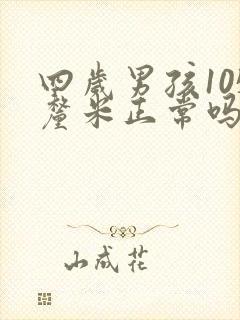 四岁男孩10
厘米正常吗
山成花